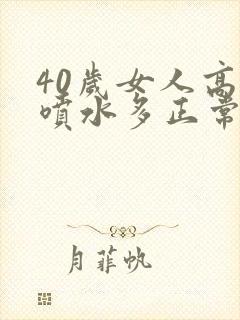 40歲女人高
噴水多正常
月菲帆